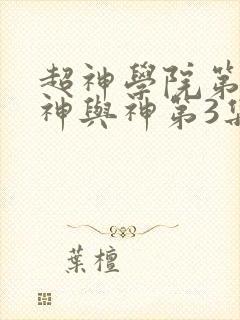 超神學院第
神與神第3集
葉檀